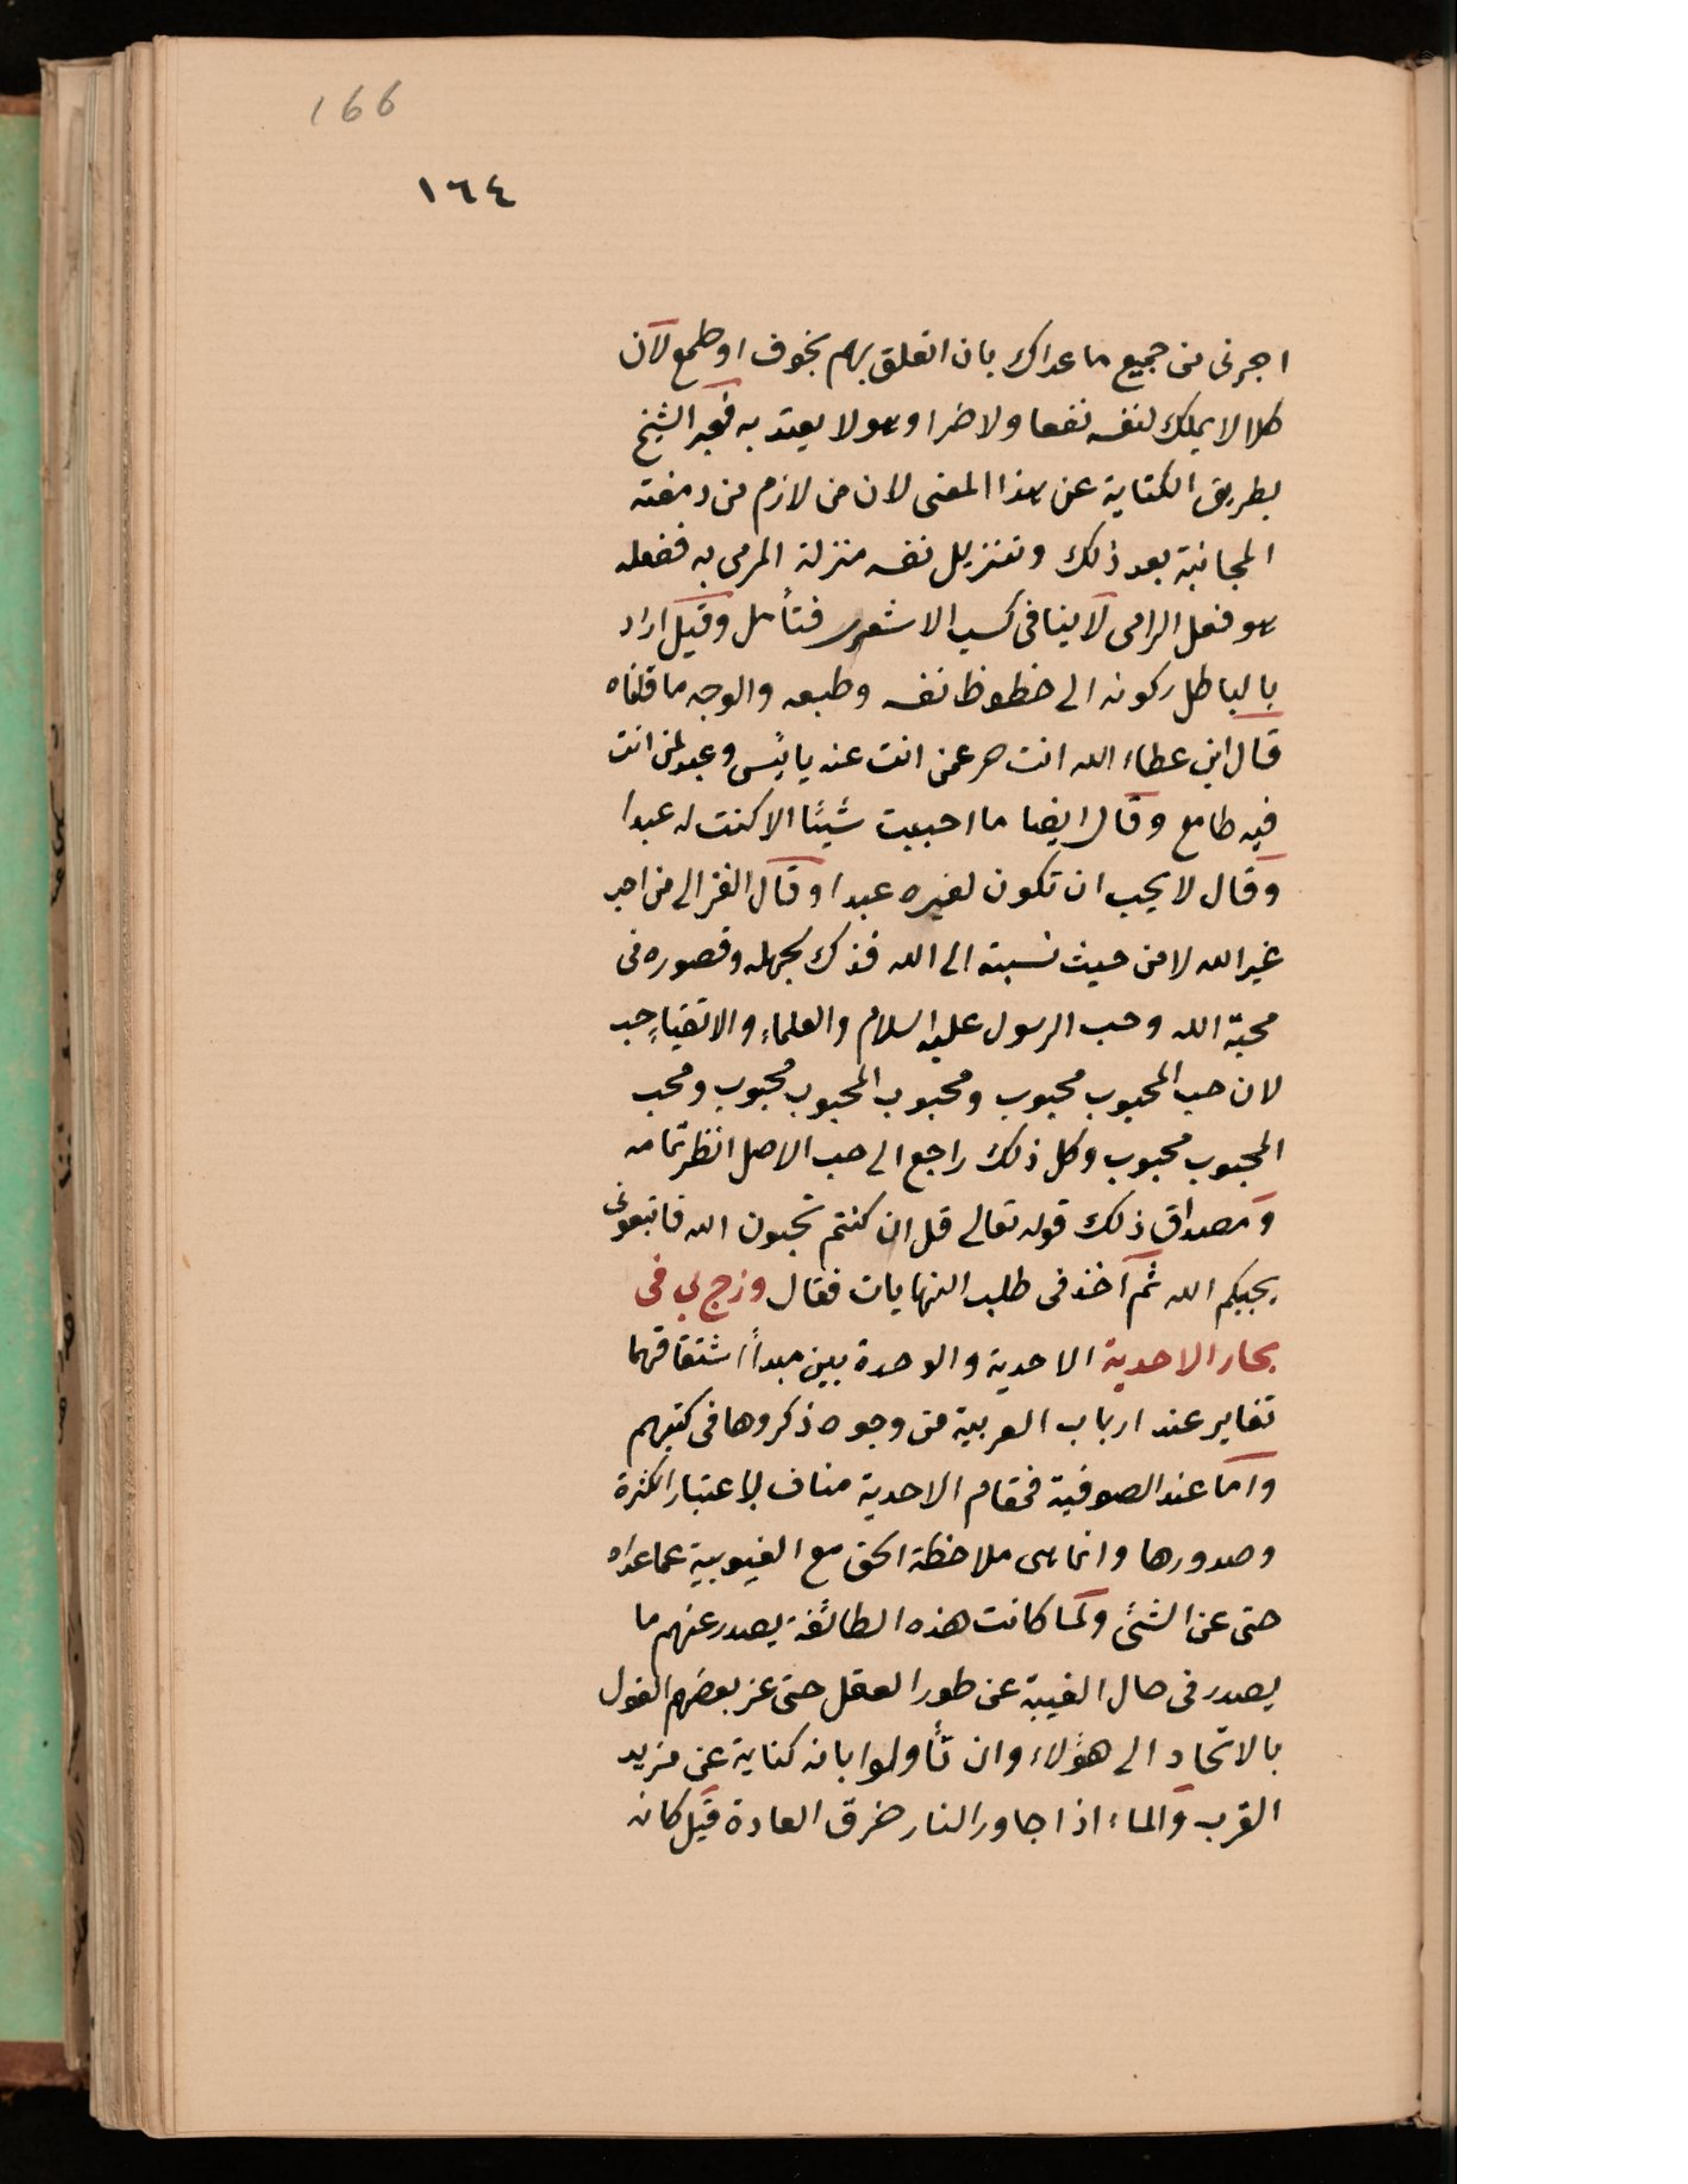 166
١٦٤
اجرنى من جميع ما عداك بان اتعلق بهم بخوف او طمع لان
كلا لا يملك لنفسه نفعا ولا ضرا وهو لا يعتد به فعبر الشيخ
بطريق الكناية عن هذا المعنى لان من لازم من دمغته
المجانبة بعد ذلك وتنزيل نفسه منزلة المرمى به ففعله
هو فعل الرامى لا ينافى كسب الاشعرى فتأمل وقيل اراد
بالباطل ركونه الى حظوظ نفسه وطبعه والوجه ما قلناه
قال ابن عطاء الله انت حر عمن انت عنه يائس وعبد لمن انت
فيه طامع وقال ايضا ما احببت شيئا الا كنت له عبدا
وقال لا يحب ان تكون لغيره عبدا وقال الغزالى من احب
غير الله لا من حيث نسبته الى الله فذك لجهله وقصوره فى
محبة الله وحب الرسول عليه السلام والعلماء والاتقياء حب
لان حب المحبوب محبوب ومحبوب المحبوب محبوب ومحب
المحبوب محبوب وكل ذلك راجع الى حب الاصل انظر تمامه
ومصداق ذلك قوله تعالى قل ان كنتم تحبون الله فاتبعونى
يحببكم الله ثم اخذ فى طلب النهايات فقال وزج بى فى
بحار الاحدية الاحدية والوحدة بين مبدأ اشتقاقهما
تغاير عند ارباب العربية من وجوه ذكروها فى كتبهم
واما عند الصوفية فمقام الاحدية مناف لاعتبار الكثرة
وصدورها وانما هى ملاحظة الحق مع الغيوبية عما عداه
حتى عن الشئ ولما كانت هذه الطائفة يصدر عنهم ما
يصدر فى حال الغيبة عن طور العقل حتى عز بعضهم القول
بالاتحاد الى هؤلاء وان تأولوا بانه كناية عن مزيد
القرب والماء اذا جاور النار خرق العادة قيل كانه